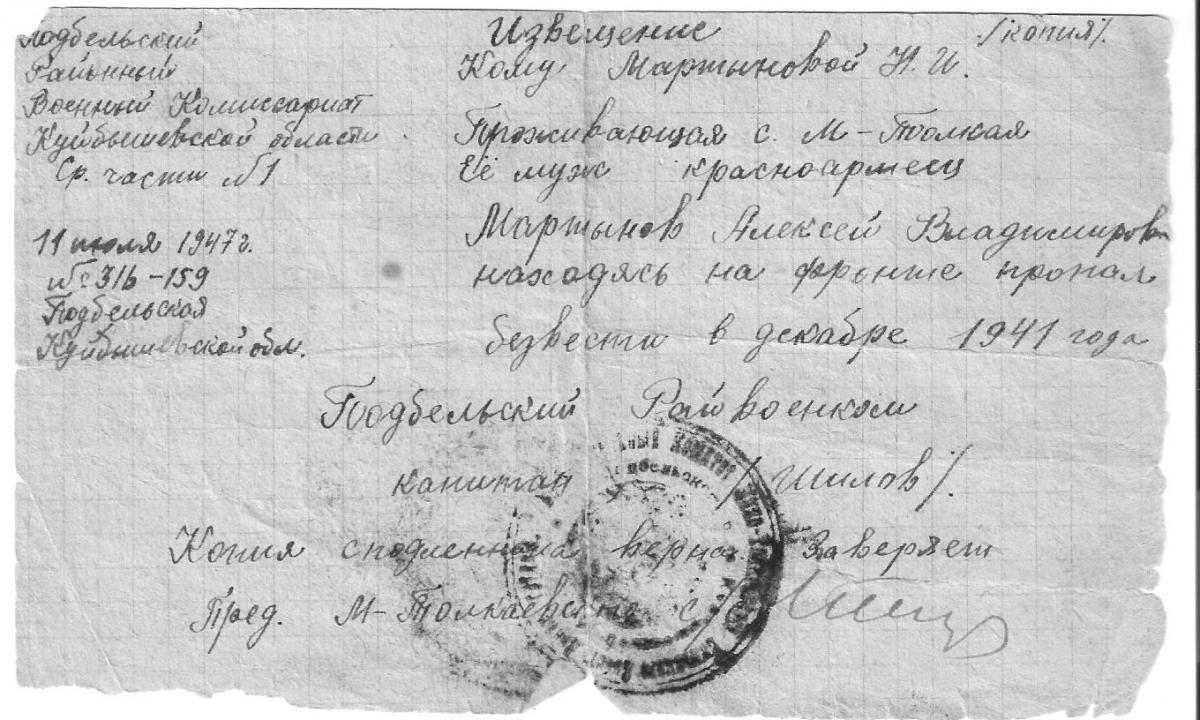 Подбельский
Районный
Военный Комиссариат
Куйбышевской области
Ср. части №1
11 июля 1947 г.
№ 316-159
Подбельская
Куйбышевской обл.
Извещение /копия/.
Кому Мартыновой Н. И.
Проживающая с. М-Толкая
Её муж красноармеец
Мартынов Алексей Владимирови
находясь на фронте пропал
безвести в декабре 1941 года
Подбельский Райвоенком
капитан /Шилов/.
Копия сподленного верна. Заверяет
Пред. М-Толкаевского с/